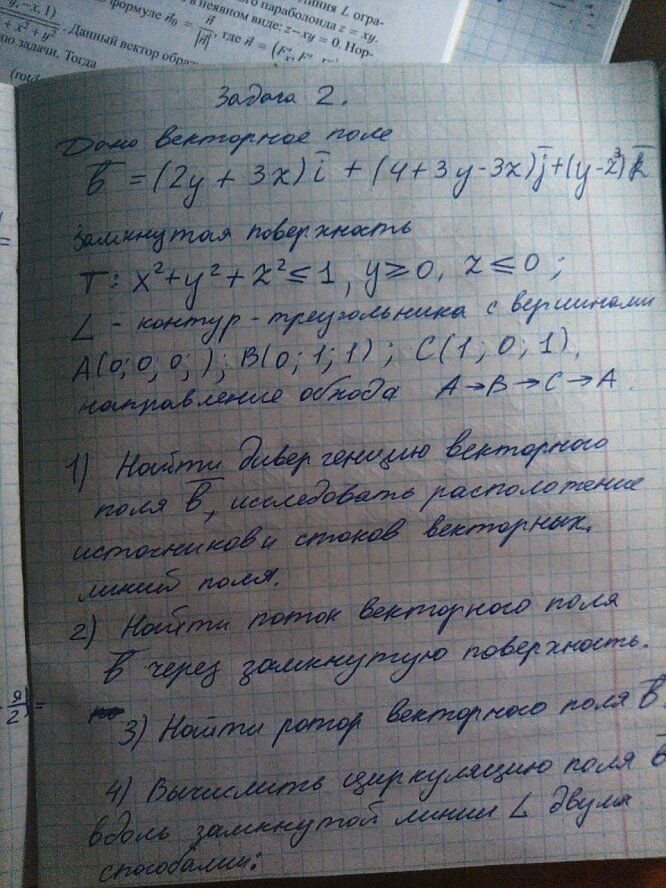 линия L огра-
ного параболоида z = xy.
в неявном виде: z−xy = 0. Нор-
формуле n̄₀ = n̄/|n̄|, где n̄ =
y, −x, 1)
+ x² + y²
. Данный вектор
задачи. Тогда
(rot
Задача 2.
Дано векторное поле
b̄ = (2y + 3x) ī + (4+3y-3x) j̄ + (y-z³) k̄
Замкнутая поверхность
T: x²+y²+z² ≤ 1, y ≥ 0, z ≤ 0;
L - контур - треугольника с вершинами
A(0; 0; 0;); B(0; 1; 1); C(1; 0; 1),
направление обхода A→B→C→A.
1) Найти дивергенцию векторного
поля b̄, исследовать расположение
источников и стоков векторных.
линий поля.
2) Найти поток векторного поля
b̄ через замкнутую поверхность.
3) Найти ротор векторного поля b̄.
4) Вычислить циркуляцию поля b̄
вдоль замкнутой линии L двумя
способами: